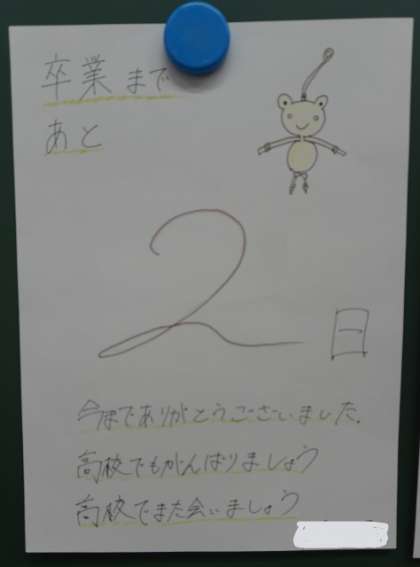 卒業まで
あと
2日
今までありがとうございました.
高校でもがんばりましょう
高校でまた会いましょう